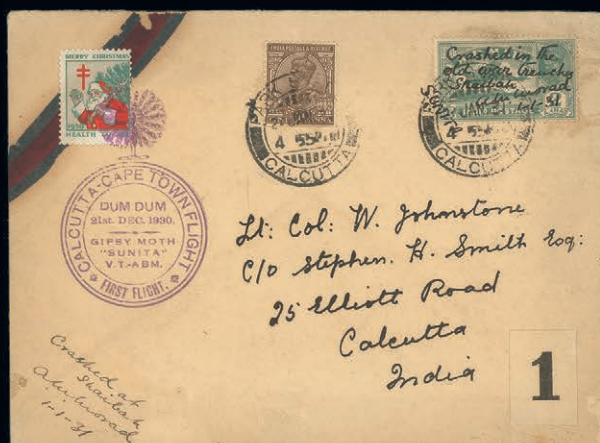 MERRY CHRISTMAS
1930
HEALTH
INDIA POSTAGE & REVENUE
Crashed in the
old war trenches
Shaibah
CALCUTTA
4 55P.M
CALCUTTA
4 55P.M
CALCUTTA-CAPE TOWN FLIGHT
DUM DUM
21st. DEC. 1930.
GIPSY MOTH
"SUNITA"
V.T.-ABM.
FIRST FLIGHT.
Lt: Col: W. Johnstone
C/o Stephen. H. Smith Esq:
25 Elliott Road
Calcutta
India
Crashed at
Shaibah
1-1-31
1